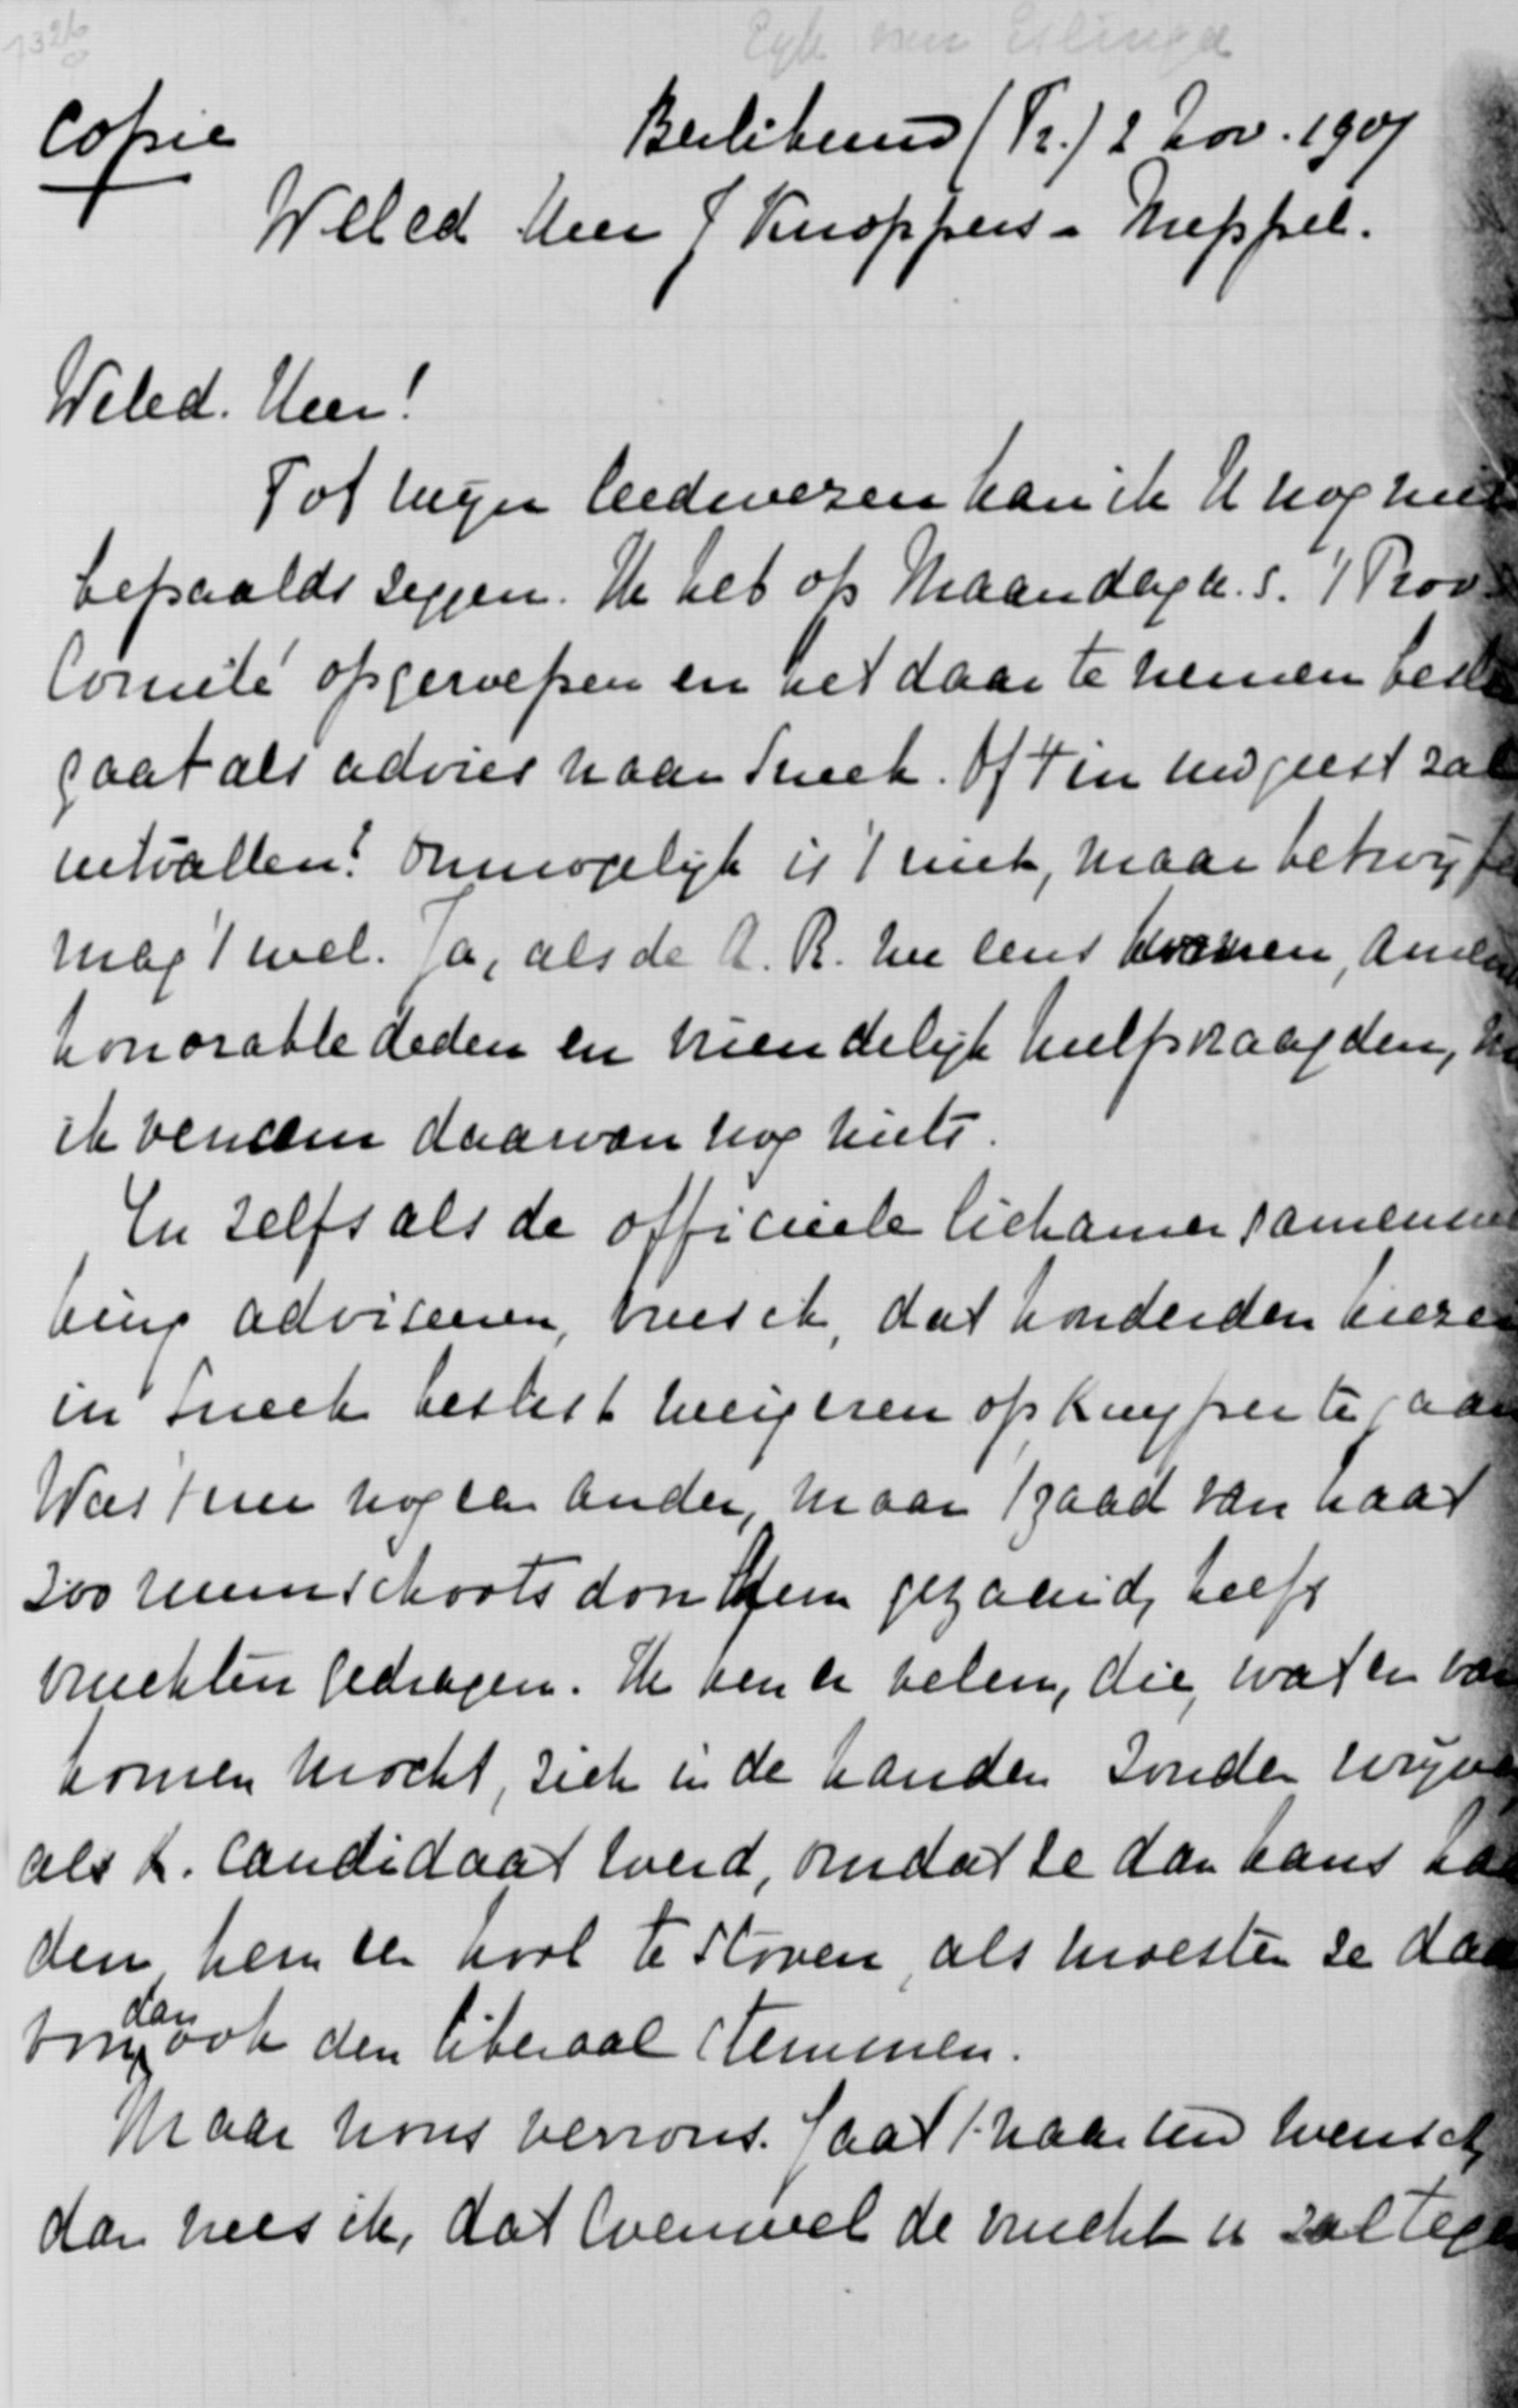 Copie
Berlikum (Fr.) 2 Nov. 1907
WelEd Heer J Knoppers - Meppel.
WelEd. Heer!
Tot mijn leedwezen kan ik U nog niets
bepaalds zeggen. Ik heb op Maandag a.s. 't Prov.
Comité opgeroepen en het daar te nemen besl
gaat als advies naar Sneek. Of 't in uw geest zal
uitvallen? Onmogelijk is 't niet, maar betwijf
mag 't wel. Ja, als de A. R. nu eens kwamen, amende
honorable deden en vriendelijk hulp vraagden,
ik vernam daarvan nog niets.
En zelfs als de officieele lichamen samenwer
king adviseeren, vrees ik, dat honderden kieze
in Sneek beslist weigeren op Kuyper te gaan
Was 't nu nog een ander, maar 't zaad van haat
zoo ruimschoots door Hem gezaaid, heeft
vruchten gedragen. Ik ken er velen, die, wat er van
komen mocht, zich in de handen zouden wrijven
als K. candidaat werd, omdat ze dan kans had
den hem een kool te stoven, als moesten ze daar
voor dan ook den liberaal stemmen.
Maar nous verrons. Gaat 't naar uw wensch,
dan vrees ik, dat evenwel de vrucht u zal tege